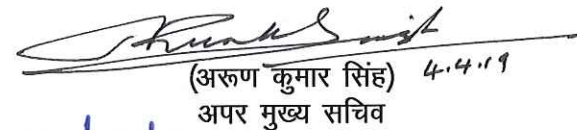 (अरूण कुमार सिंह) 4.4.19
अपर मुख्य सचिव